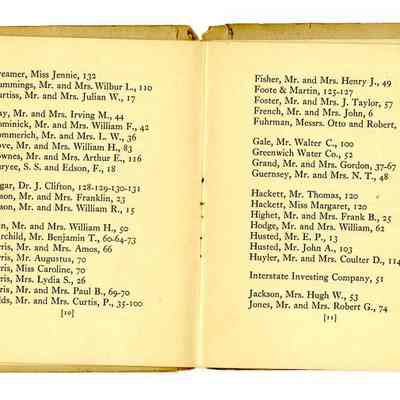 reamer, Miss Jennie, 132
ummings, Mr. and Mrs. Wilbur L., 110
urtiss, Mr. and Mrs. Julian W., 17
ay, Mr. and Mrs. Irving M., 44
ominick, Mr. and Mrs. William F., 42
ommerich, Mr. and Mrs. L. W., 36
ove, Mr. and Mrs. William H., 83
ownes, Mr. and Mrs. Arthur E., 116
uryee, S. S. and Edson, F., 18
gar, Dr. J. Clifton, 128-129-130-131
son, Mr. and Mrs. Franklin, 23
son, Mr. and Mrs. William R., 15
n, Mr. and Mrs. William H., 50
irchild, Mr. Benjamin T., 60-64-73
rris, Mr. and Mrs. Amos, 66
rris, Mr. Augustus, 70
rris, Miss Caroline, 70
rris, Mrs. Lydia S., 26
rris, Mr. and Mrs. Paul B., 69-70
lds, Mr. and Mrs. Curtis, P., 35-100
[10]
Fisher, Mr. and Mrs. Henry J., 49
Foote & Martin, 125-127
Foster, Mr. and Mrs. J. Taylor, 57
French, Mr. and Mrs. John, 6
Fuhrman, Messrs. Otto and Robert,
Gale, Mr. Walter C., 100
Greenwich Water Co., 52
Grand, Mr. and Mrs. Gordon, 37-67
Guernsey, Mr. and Mrs. N. T., 48
Hackett, Mr. Thomas, 120
Hackett, Miss Margaret, 120
Highet, Mr. and Mrs. Frank B., 25
Hodge, Mr. and Mrs. William, 62
Husted, Mr. E. P., 13
Husted, Mr. John A., 103
Huyler, Mr. and Mrs. Coulter D., 114
Interstate Investing Company, 51
Jackson, Mrs. Hugh W., 53
Jones, Mr. and Mrs. Robert G., 74
[11]